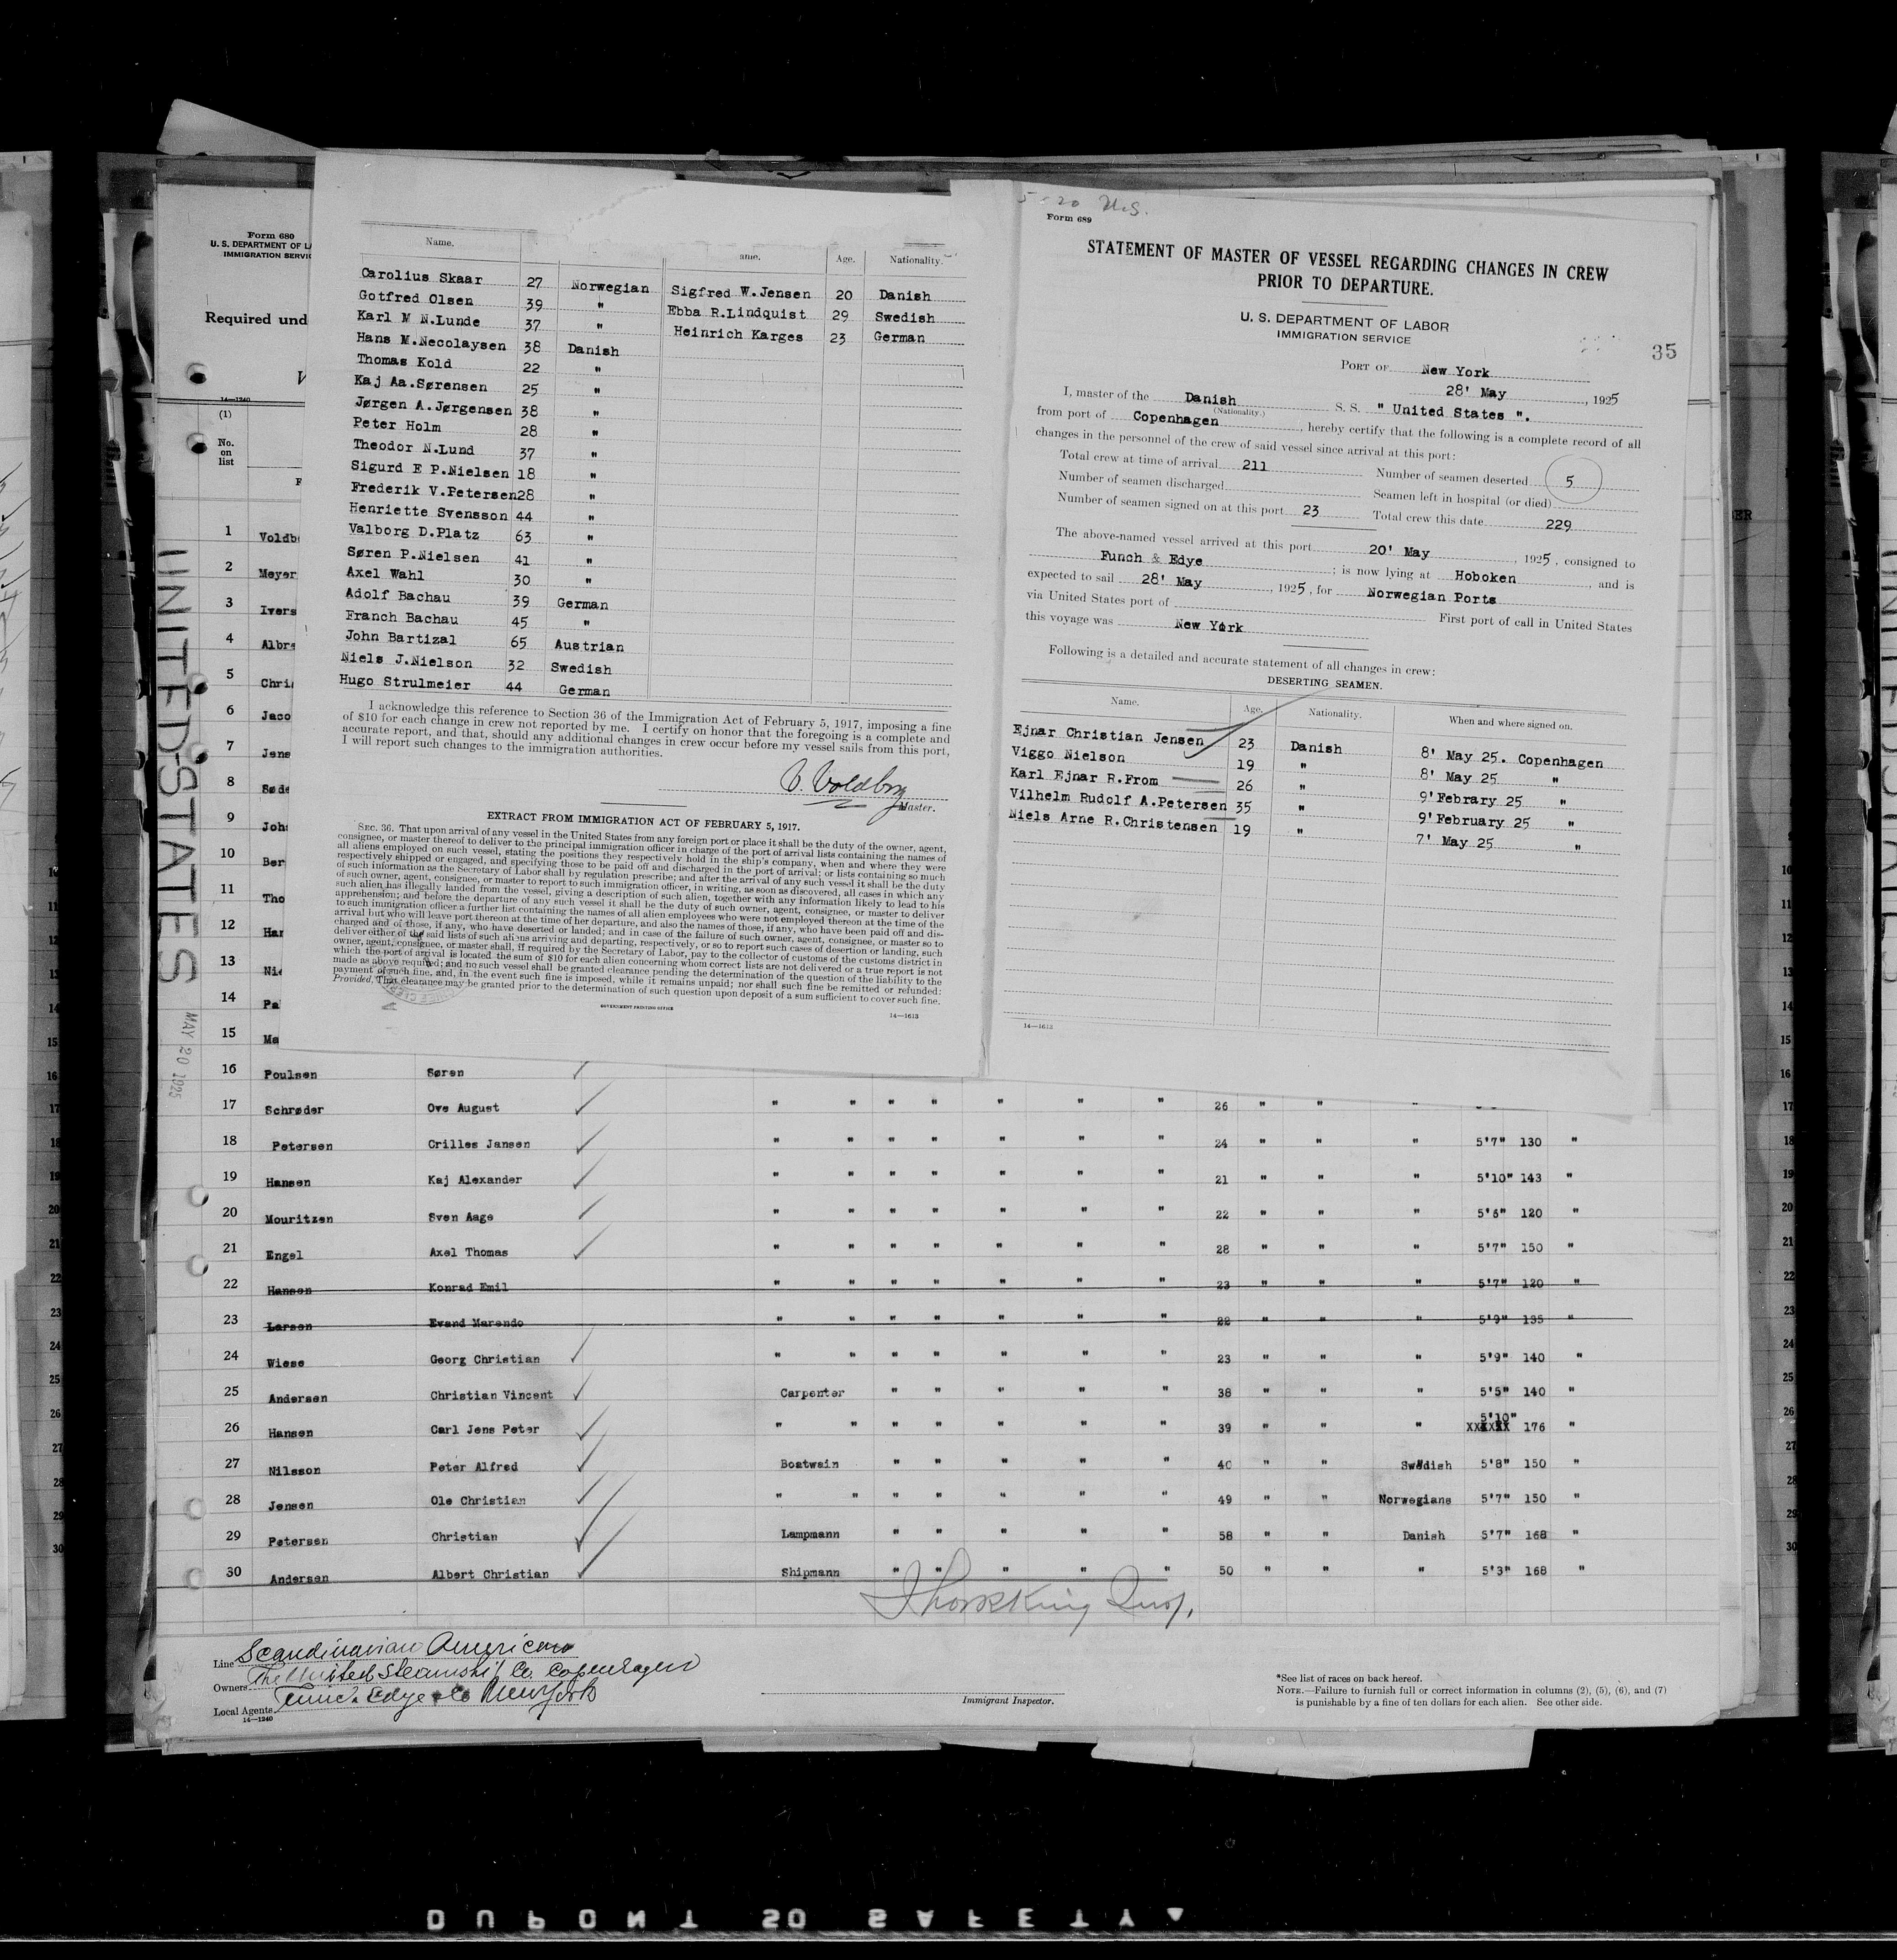 Form 680
U. S. DEPARTMENT OF L
IMMIGRATION SERVIC
Required und
14—1240
(1)
No.
on
list
UNITED-STATES
MAY 20 1925
Name.
ame. Age. Nationality.
Carolius Skaar 27 Norwegian Sigfred W.Jensen 20 Danish
Gotfred Olsen 39 " Ebba R.Lindquist 29 Swedish
Karl M N.Lunde 37 " Heinrich Karges 23 German
Hans M.Necolaysen 38 Danish
Thomas Kold 22 "
Kaj Aa.Sørensen 25 "
Jørgen A.Jørgensen 38 "
Peter Holm 28 "
Theodor N.Lund 37 "
Sigurd E P.Nielsen 18 "
Frederik V.Petersen 28 "
Henriette Svensson 44 "
Valborg D.Platz 63 "
Søren P.Nielsen 41 "
Axel Wahl 30 "
Adolf Bachau 39 German
Franch Bachau 45 "
John Bartizal 65 Austrian
Niels J.Nielson 32 Swedish
Hugo Strulmeier 44 German
I acknowledge this reference to Section 36 of the Immigration Act of February 5, 1917, imposing a fine
of $10 for each change in crew not reported by me. I certify on honor that the foregoing is a complete and
accurate report, and that, should any additional changes in crew occur before my vessel sails from this port,
I will report such changes to the immigration authorities.
Voldborg
Master.
EXTRACT FROM IMMIGRATION ACT OF FEBRUARY 5, 1917.
SEC. 36. That upon arrival of any vessel in the United States from any foreign port or place it shall be the duty of the owner, agent,
consignee, or master thereof to deliver to the principal immigration officer in charge of the port of arrival lists containing the names of
all aliens employed on such vessel, stating the positions they respectively hold in the ship's company, when and where they were
respectively shipped or engaged, and specifying those to be paid off and discharged in the port of arrival; or lists containing so much
of such information as the Secretary of Labor shall by regulation prescribe; and after the arrival of any such vessel it shall be the duty
of such owner, agent, consignee, or master to report to such immigration officer, in writing, as soon as discovered, all cases in which any
such alien has illegally landed from the vessel, giving a description of such alien, together with any information likely to lead to his
apprehension; and before the departure of any such vessel it shall be the duty of such owner, agent, consignee, or master to deliver
to such immigration officer a further list containing the names of all alien employees who were not employed thereon at the time of the
arrival but who will leave port thereon at the time of her departure, and also the names of those, if any, who have been paid off and dis-
charged and of those, if any, who have deserted or landed; and in case of the failure of such owner, agent, consignee, or master so to
deliver either of the said lists of such aliens arriving and departing, respectively, or so to report such cases of desertion or landing, such
owner, agent, consignee, or master shall, if required by the Secretary of Labor, pay to the collector of customs of the customs district in
which the port of arrival is located the sum of $10 for each alien concerning whom correct lists are not delivered or a true report is not
made as above required; and no such vessel shall be granted clearance pending the determination of the question of the liability to the
payment of such fine, and, in the event such fine is imposed, while it remains unpaid; nor shall such fine be remitted or refunded:
Provided, That clearance may be granted prior to the determination of such question upon deposit of a sum sufficient to cover such fine.
GOVERNMENT PRINTING OFFICE
14—1613
Form 689
STATEMENT OF MASTER OF VESSEL REGARDING CHANGES IN CREW
PRIOR TO DEPARTURE.
U. S. DEPARTMENT OF LABOR
IMMIGRATION SERVICE
35
PORT OF New York
28' May, 1925
I, master of the Danish S. S. " United States ".
(Nationality.)
from port of Copenhagen, hereby certify that the following is a complete record of all
changes in the personnel of the crew of said vessel since arrival at this port:
Total crew at time of arrival 211 Number of seamen deserted 5
Number of seamen discharged Seamen left in hospital (or died)
Number of seamen signed on at this port 23 Total crew this date 229
The above-named vessel arrived at this port 20' May, 1925, consigned to
Funch & Edye; is now lying at Hoboken, and is
expected to sail 28' May, 1925, for Norwegian Ports
via United States port of First port of call in United States
this voyage was New York
Following is a detailed and accurate statement of all changes in crew:
DESERTING SEAMEN.
Name. Age. Nationality. When and where signed on.
Ejnar Christian Jensen 23 Danish 8' May 25. Copenhagen
Viggo Nielson 19 " 8' May 25 "
Karl Ejnar R.From 26 " 9'Febrary 25 "
Vilhelm Rudolf A.Petersen 35 " 9'February 25 "
Niels Arne R.Christensen 19 " 7' May 25 "
14—1613
1 Voldb
2 Meyer
3 Ivers
4 Albre
5 Chri
6 Jaco
7 Jens
8 Søde
9 Joh
10 Ber
11 Tho
12 Han
13 Nie
14 Pa
15 Ma
16 Poulsen Søren
17 Schrøder Ove August " " " " " " " 26 " " "
18 Petersen Crilles Jansen " " " " " " " 24 " " " 5'7" 130 "
19 Hansen Kaj Alexander " " " " " " " 21 " " " 5'10" 143 "
20 Mouritzen Sven Aage " " " " " " " 22 " " " 5'6" 120 "
21 Engel Axel Thomas " " " " " " " 28 " " " 5'7" 150 "
22 Hansen Konrad Emil " " " " " " " 23 " " " 5'7" 120 "
23 Larsen Evand Marendo " " " " " " " 22 " " " 5'9" 135 "
24 Wiese Georg Christian " " " " " " " 23 " " " 5'9" 140 "
25 Andersen Christian Vincent Carpenter " " " " " 38 " " " 5'5" 140 "
26 Hansen Carl Jens Peter " " " " " " " 39 " " " 5'10" XXXXXX 176 "
27 Nilsson Peter Alfred Boatwain " " " " " 40 " " Swedish 5'8" 150 "
28 Jensen Ole Christian " " " " " " " 49 " " Norwegians 5'7" 150 "
29 Petersen Christian Lampmann " " " " " 58 " " Danish 5'7" 168 "
30 Andersen Albert Christian Shipmann " " " " " 50 " " " 5'3" 168 "
Line Scandinavian American
Owners The United Steamship Co. Copenhagen
Local Agents Edye & Co New York
14—1240
Immigrant Inspector.
*See list of races on back hereof.
NOTE.—Failure to furnish full or correct information in columns (2), (5), (6), and (7)
is punishable by a fine of ten dollars for each alien. See other side.
DUPONT SO SAFETY